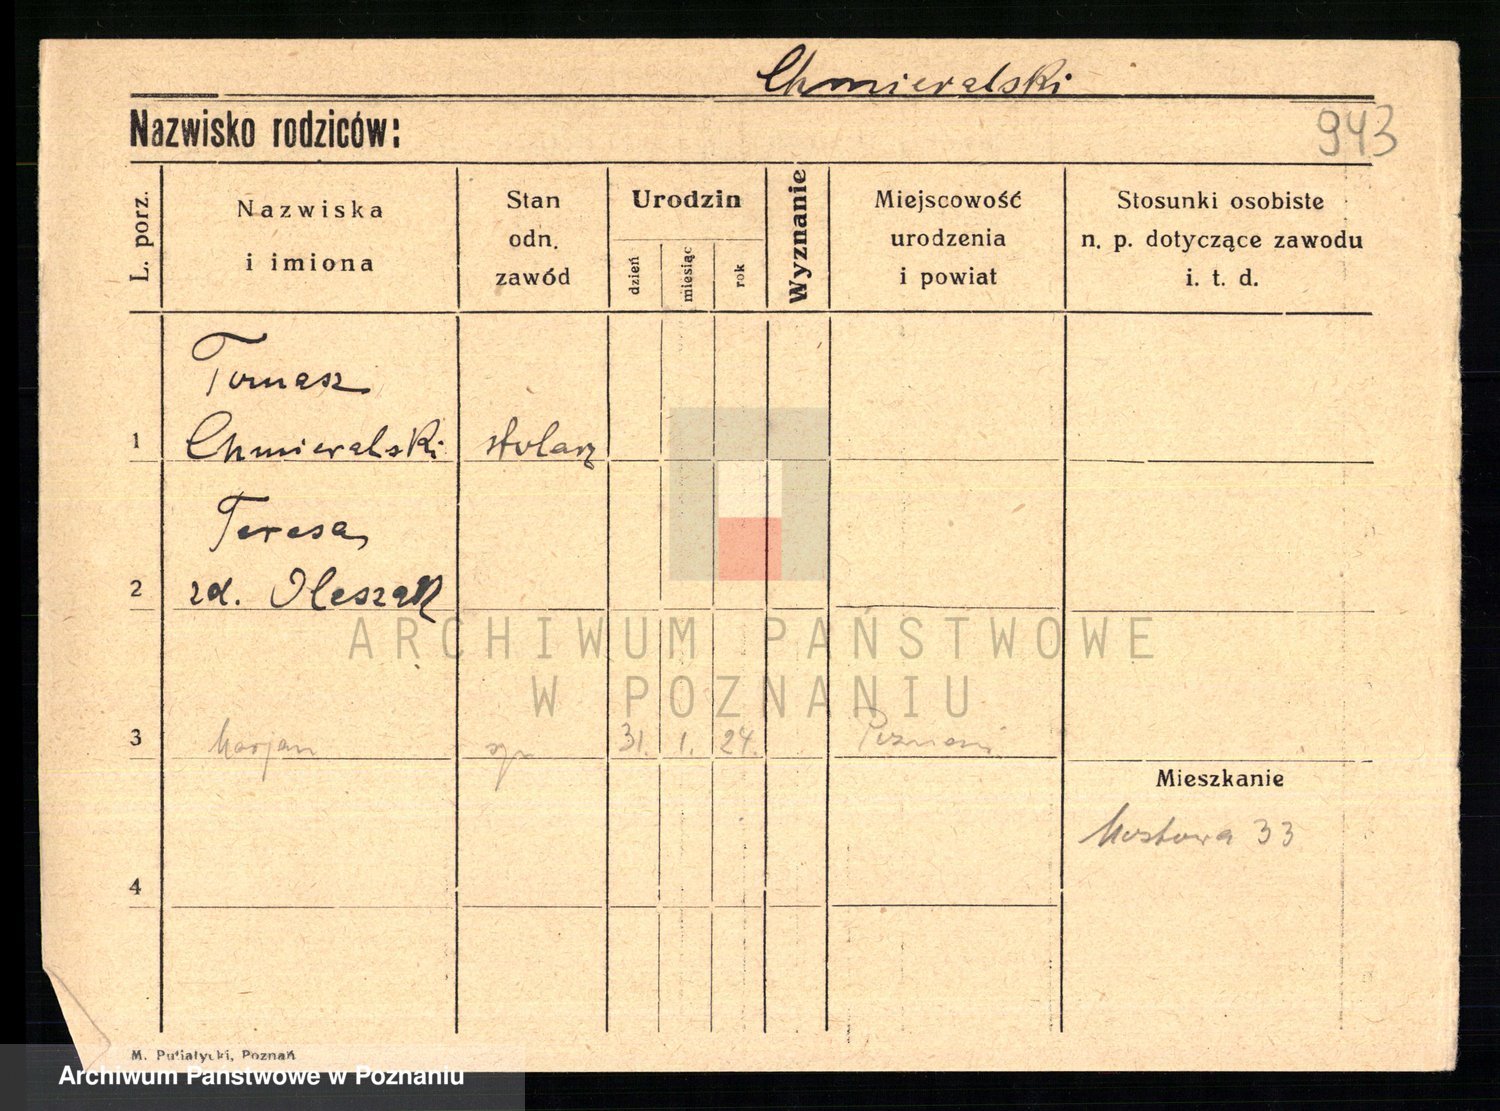 Chmieralski
Nazwisko rodziców:
943
L. porz.
Nazwiska
i imiona
Stan
odn.
zawód
Urodzin
dzień
miesiąc
rok
Wyznanie
Miejscowość
urodzenia
i powiat
Stosunki osobiste
n. p. dotyczące zawodu
i. t. d.
Tomasz
1 Chmieralski stolarz
Teresa
2 zd. Oleszak
ARCHIWUM PAŃSTWOWE
W POZNANIU
3 Marjan 31. 1. 24. Poznań
Mieszkanie
Mostowa 33
4
M. Putiatycki, Poznań
Archiwum Państwowe w Poznaniu